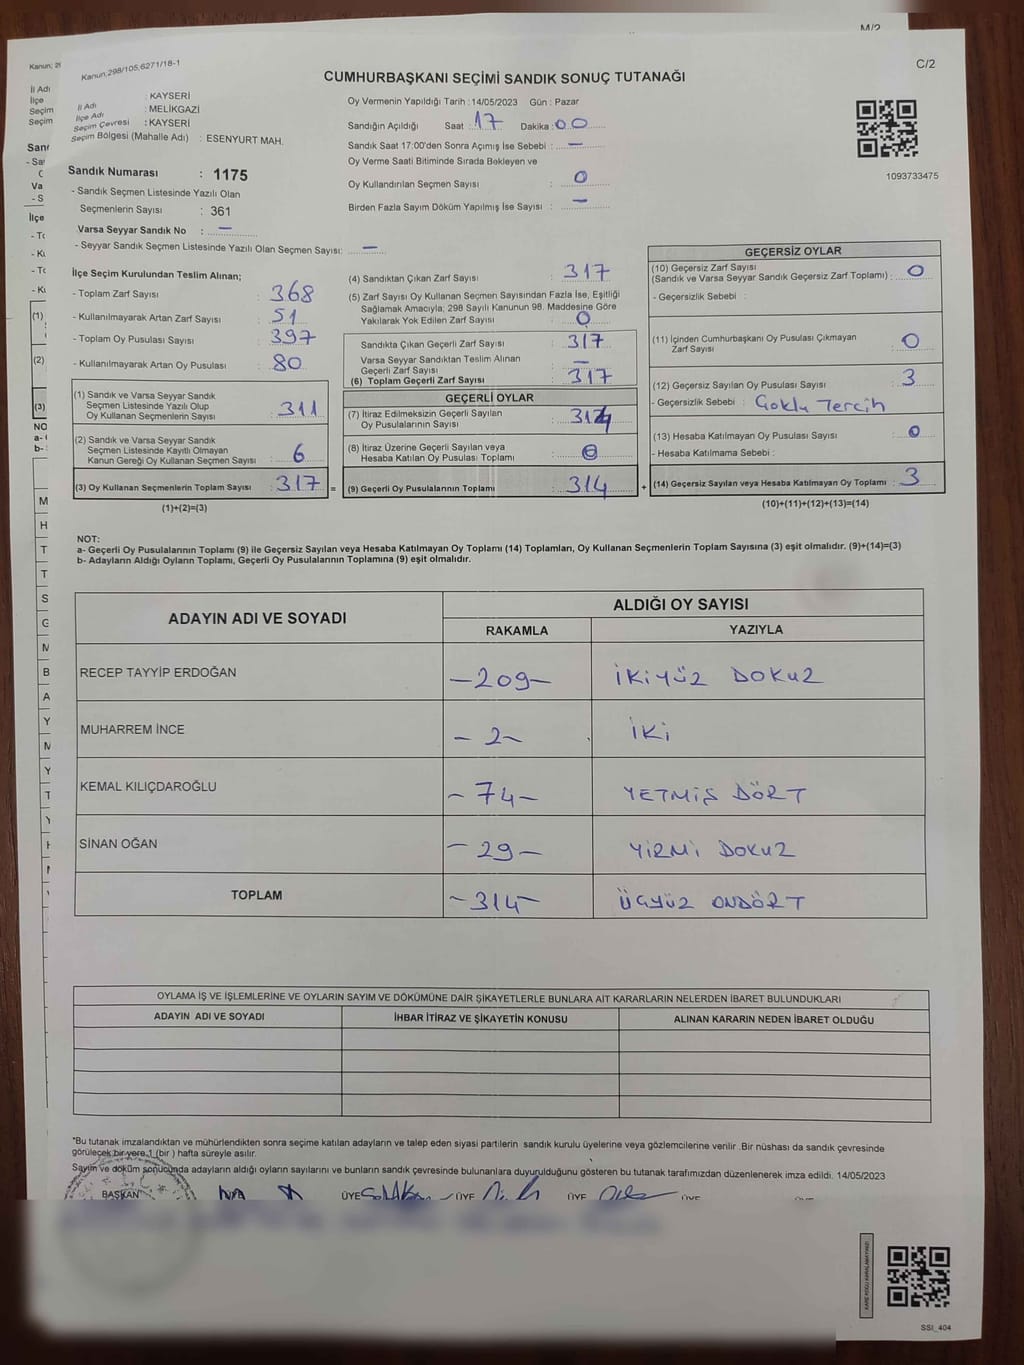 M/2
Kanun, 298/105,6271/18-1
C/2
CUMHURBAŞKANI SEÇİMİ SANDIK SONUÇ TUTANAĞI
İl Adı : KAYSERİ
İlçe Adı : MELİKGAZİ
Seçim Çevresi : KAYSERİ
Seçim Bölgesi (Mahalle Adı) : ESENYURT MAH.
Sandık Numarası : 1175
- Sandık Seçmen Listesinde Yazılı Olan
Seçmenlerin Sayısı : 361
Varsa Seyyar Sandık No : —
- Seyyar Sandık Seçmen Listesinde Yazılı Olan Seçmen Sayısı: —
Oy Vermenin Yapıldığı Tarih : 14/05/2023 Gün : Pazar
Sandığın Açıldığı Saat : 17 Dakika : 00
Sandık Saat 17:00'den Sonra Açımış İse Sebebi : —
Oy Verme Saati Bitiminde Sırada Bekleyen ve
Oy Kullandırılan Seçmen Sayısı : 0
Birden Fazla Sayım Döküm Yapılmış İse Sayısı : —
1093733475
İlçe Seçim Kurulundan Teslim Alınan;
- Toplam Zarf Sayısı : 368
- Kullanılmayarak Artan Zarf Sayısı : 51
- Toplam Oy Pusulası Sayısı : 397
- Kullanılmayarak Artan Oy Pusulası : 80
(1) Sandık ve Varsa Seyyar Sandık
Seçmen Listesinde Yazılı Olup
Oy Kullanan Seçmenlerin Sayısı : 311
(2) Sandık ve Varsa Seyyar Sandık
Seçmen Listesinde Kayıtlı Olmayan
Kanun Gereği Oy Kullanan Seçmen Sayısı : 6
(3) Oy Kullanan Seçmenlerin Toplam Sayısı : 317 =
(1)+(2)=(3)
(4) Sandıktan Çıkan Zarf Sayısı : 317
(5) Zarf Sayısı Oy Kullanan Seçmen Sayısından Fazla İse, Eşitliği
Sağlamak Amacıyla; 298 Sayılı Kanunun 98. Maddesine Göre
Yakılarak Yok Edilen Zarf Sayısı : 0
Sandıkta Çıkan Geçerli Zarf Sayısı : 317
Varsa Seyyar Sandıktan Teslim Alınan
Geçerli Zarf Sayısı : —
(6) Toplam Geçerli Zarf Sayısı : 317
GEÇERLİ OYLAR
(7) İtiraz Edilmeksizin Geçerli Sayılan
Oy Pusulalarının Sayısı : 314
(8) İtiraz Üzerine Geçerli Sayılan veya
Hesaba Katılan Oy Pusulası Toplamı : 0
(9) Geçerli Oy Pusulalarının Toplamı : 314 +
GEÇERSİZ OYLAR
(10) Geçersiz Zarf Sayısı
(Sandık ve Varsa Seyyar Sandık Geçersiz Zarf Toplamı) : 0
- Geçersizlik Sebebi :
(11) İçinden Cumhurbaşkanı Oy Pusulası Çıkmayan
Zarf Sayısı : 0
(12) Geçersiz Sayılan Oy Pusulası Sayısı : 3
- Geçersizlik Sebebi : Çoklu Tercih
(13) Hesaba Katılmayan Oy Pusulası Sayısı : 0
- Hesaba Katılmama Sebebi :
(14) Geçersiz Sayılan veya Hesaba Katılmayan Oy Toplamı : 3
(10)+(11)+(12)+(13)=(14)
NOT:
a- Geçerli Oy Pusulalarının Toplamı (9) ile Geçersiz Sayılan veya Hesaba Katılmayan Oy Toplamı (14) Toplamları, Oy Kullanan Seçmenlerin Toplam Sayısına (3) eşit olmalıdır. (9)+(14)=(3)
b- Adayların Aldığı Oyların Toplamı, Geçerli Oy Pusulalarının Toplamına (9) eşit olmalıdır.
ADAYIN ADI VE SOYADI ALDIĞI OY SAYISI
RAKAMLA YAZIYLA
RECEP TAYYİP ERDOĞAN —209— İKİYÜZ DOKUZ
MUHARREM İNCE —2— İKİ
KEMAL KILIÇDAROĞLU —74— YETMİŞ DÖRT
SİNAN OĞAN —29— YİRMİ DOKUZ
TOPLAM —314— ÜÇYÜZ ONDÖRT
OYLAMA İŞ VE İŞLEMLERİNE VE OYLARIN SAYIM VE DÖKÜMÜNE DAİR ŞİKAYETLERLE BUNLARA AİT KARARLARIN NELERDEN İBARET BULUNDUKLARI
ADAYIN ADI VE SOYADI İHBAR İTİRAZ VE ŞİKAYETİN KONUSU ALINAN KARARIN NEDEN İBARET OLDUĞU
*Bu tutanak imzalandıktan ve mühürlendikten sonra seçime katılan adayların ve talep eden siyasi partilerin sandık kurulu üyelerine veya gözlemcilerine verilir .Bir nüshası da sandık çevresinde
görülecek bir yere 1 (bir ) hafta süreyle asılır.
Sayım ve döküm sonucunda adayların aldığı oyların sayılarını ve bunların sandık çevresinde bulunanlara duyurulduğunu gösteren bu tutanak tarafımızdan düzenlenerek imza edildi. 14/05/2023
BAŞKAN ÜYE ÜYE ÜYE ÜYE
SSI_404